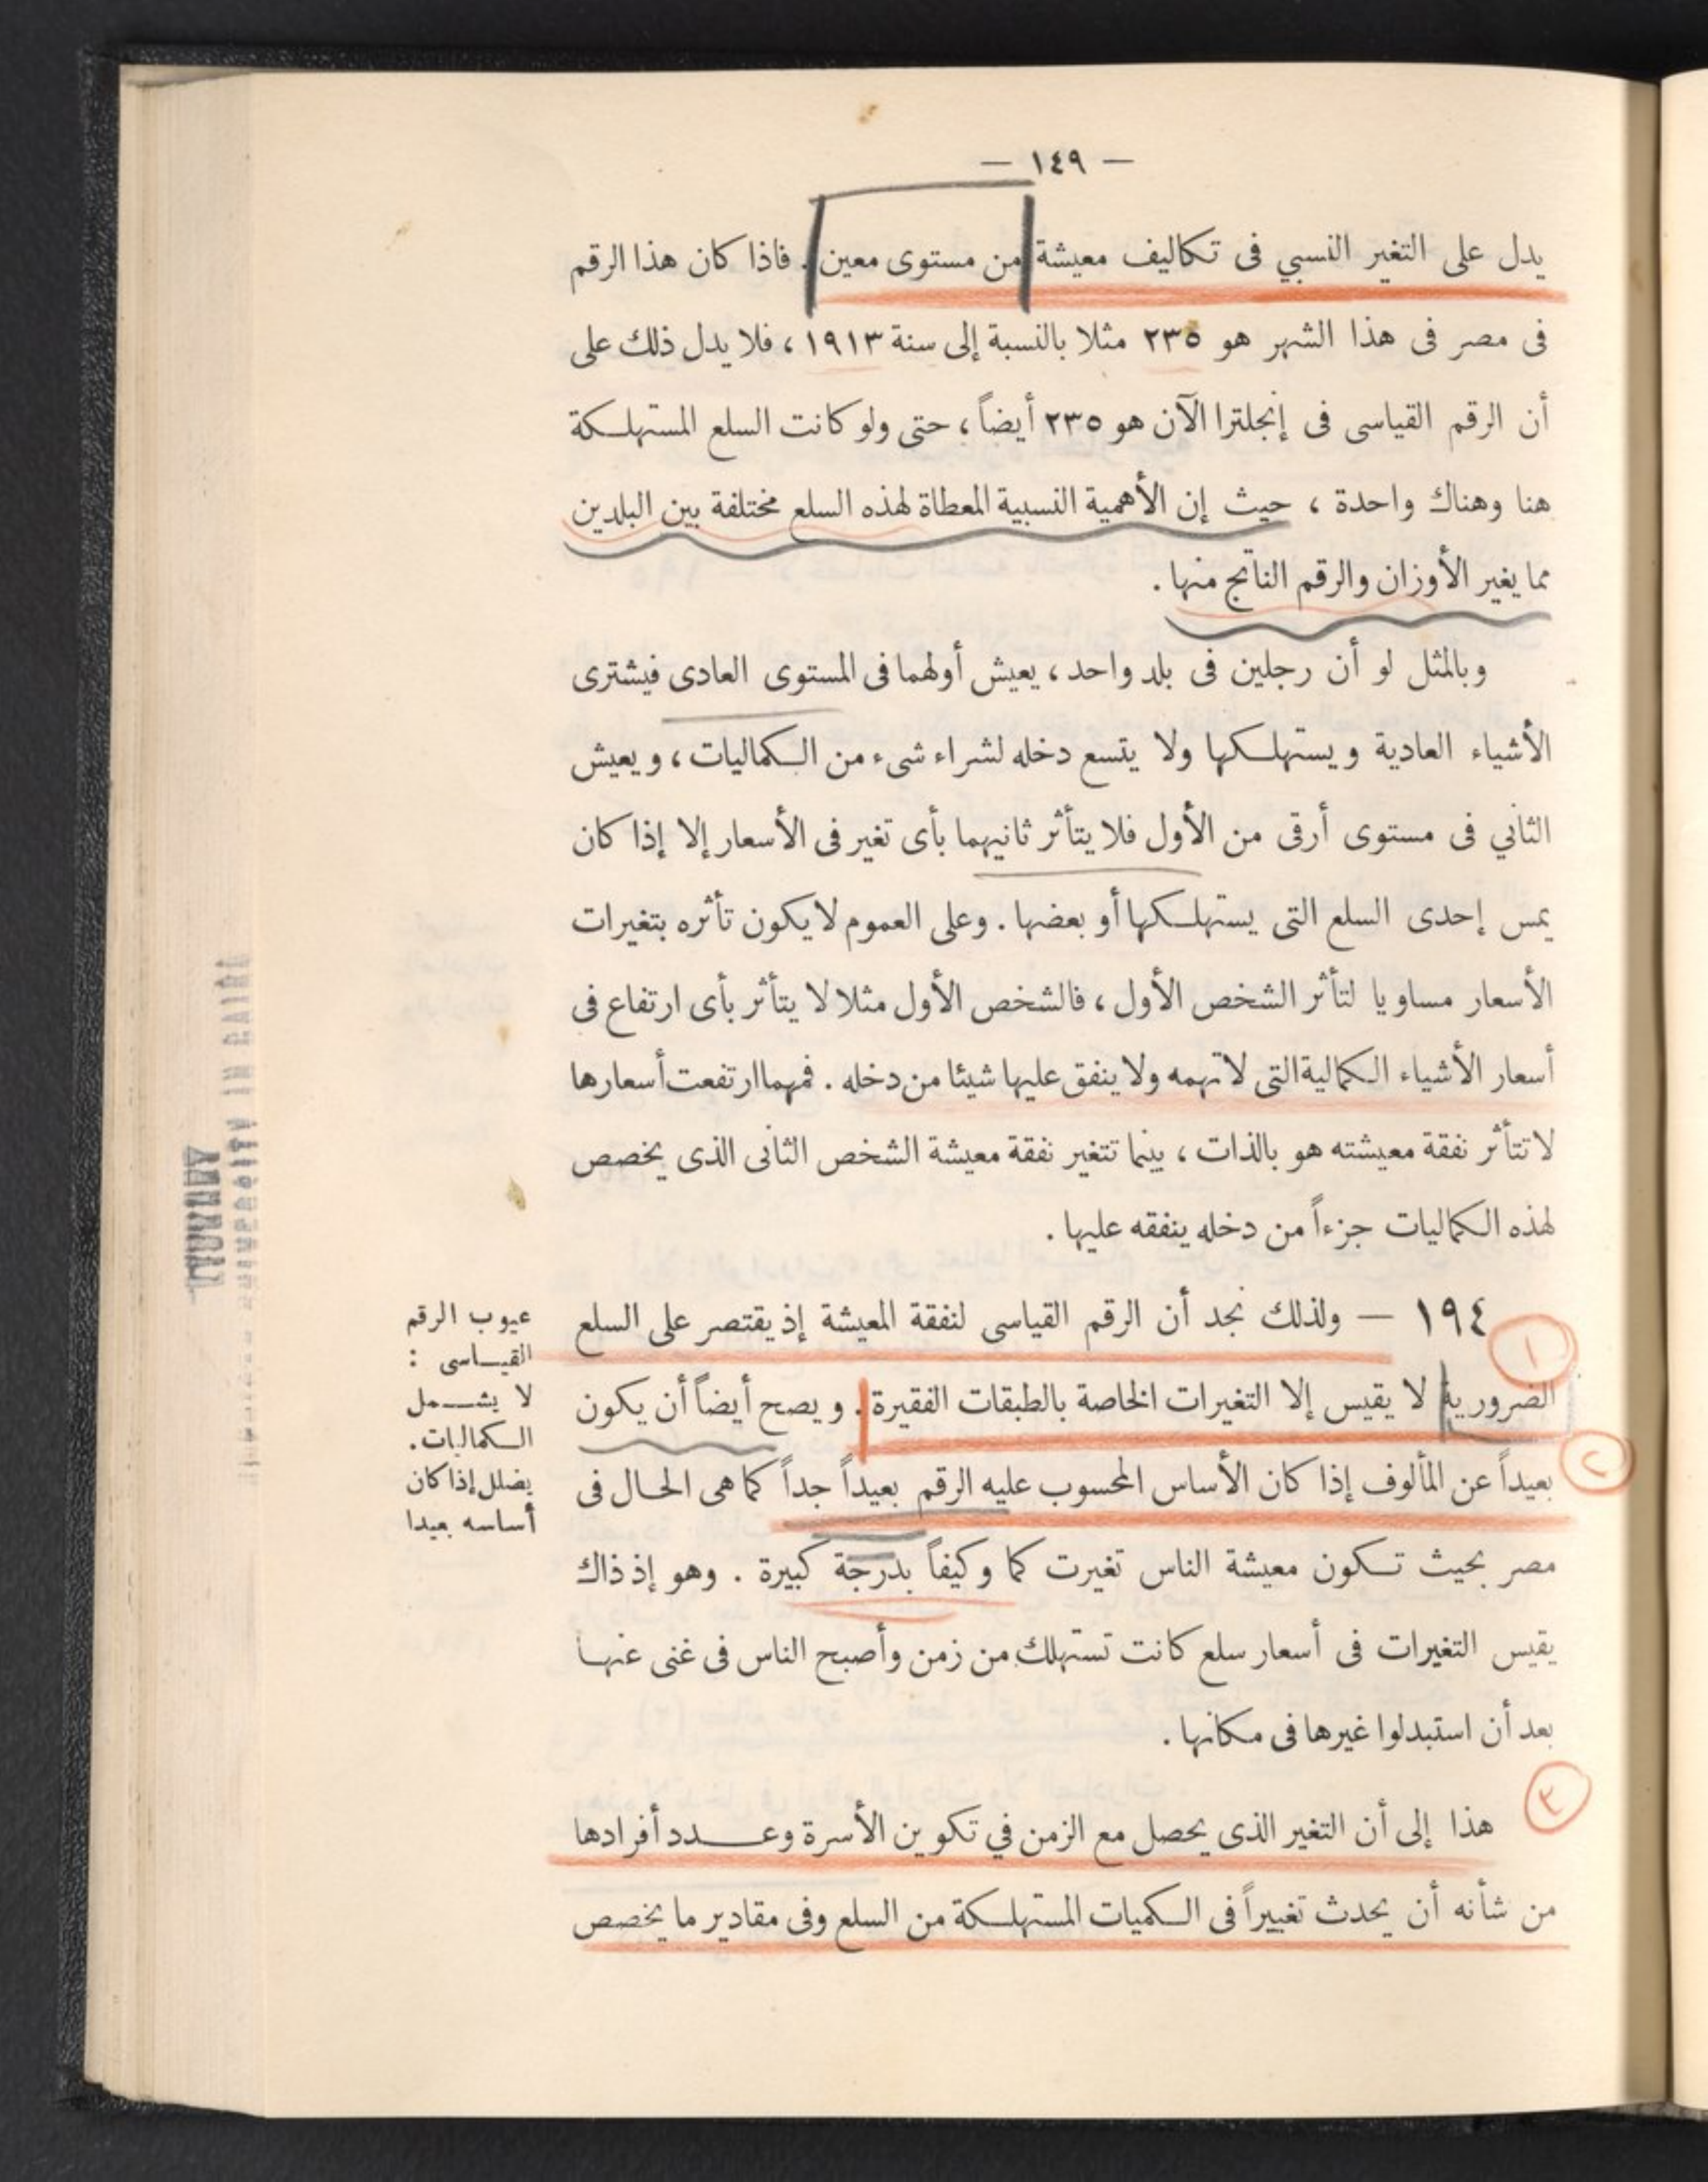 — ١٤٩ —
يدل على التغير النسبي فى تكاليف معيشة من مستوى معين . فاذا كان هذا الرقم
فى مصر فى هذا الشهر هو ٢٣٥ مثلا بالنسبة إلى سنة ١٩١٣ ، فلا يدل ذلك على
أن الرقم القياسى فى إنجلترا الآن هو ٢٣٥ أيضاً ، حتى ولو كانت السلع المستهلكة
هنا وهناك واحدة ، حيث إن الأهمية النسبية المعطاة لهذه السلع مختلفة بين البلدين
مما يغير الأوزان والرقم الناتج منها .
وبالمثل لو أن رجلين فى بلد واحد ، يعيش أولهما فى المستوى العادى فيشترى
الأشياء العادية ويستهلكها ولا يتسع دخله لشراء شىء من الكماليات ، ويعيش
الثانى فى مستوى أرقى من الأول فلا يتأثر ثانيهما بأى تغير فى الأسعار إلا إذا كان
يمس إحدى السلع التى يستهلكها أو بعضها . وعلى العموم لا يكون تأثره بتغيرات
الأسعار مساويا لتأثر الشخص الأول ، فالشخص الأول مثلا لا يتأثر بأى ارتفاع فى
أسعار الأشياء الكمالية التى لا تهمه ولا ينفق عليها شيئا من دخله . فمهما ارتفعت أسعارها
لا تتأثر نفقة معيشته هو بالذات ، بينما تتغير نفقة معيشة الشخص الثانى الذى يخصص
لهذه الكماليات جزءاً من دخله ينفقه عليها .
١٩٤ — ولذلك نجد أن الرقم القياسى لنفقة المعيشة إذ يقتصر على السلع
١
الضرورية لا يقيس إلا التغيرات الخاصة بالطبقات الفقيرة . ويصح أيضاً أن يكون
٢
بعيداً عن المألوف إذا كان الأساس المحسوب عليه الرقم بعيداً جداً كما هى الحال فى
مصر بحيث تكون معيشة الناس تغيرت كما وكيفاً بدرجة كبيرة . وهو إذ ذاك
يقيس التغيرات فى أسعار سلع كانت تستهلك من زمن وأصبح الناس فى غنى عنها
بعد أن استبدلوا غيرها فى مكانها .
٣
هذا إلى أن التغير الذى يحصل مع الزمن في تكوين الأسرة وعدد أفرادها
من شأنه أن يحدث تغييراً فى الكميات المستهلكة من السلع وفى مقادير ما يخصص
عيوب الرقم
القياسى :
لا يشمل
الكماليات.
يضلل إذا كان
أساسه بعيدا